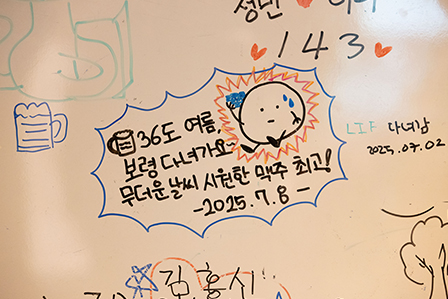 성민 ♥
♥ 143 ♥
36도 여름,
보령 다녀가요~
무더운 날씨 시원한 맥주 최고!
-2025.7.8-
LIF 다녀감
2025.07.02
김홍신